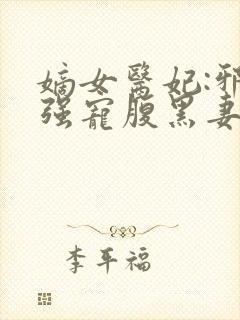 嫡女醫妃:邪
強寵腹黑妻
李平福